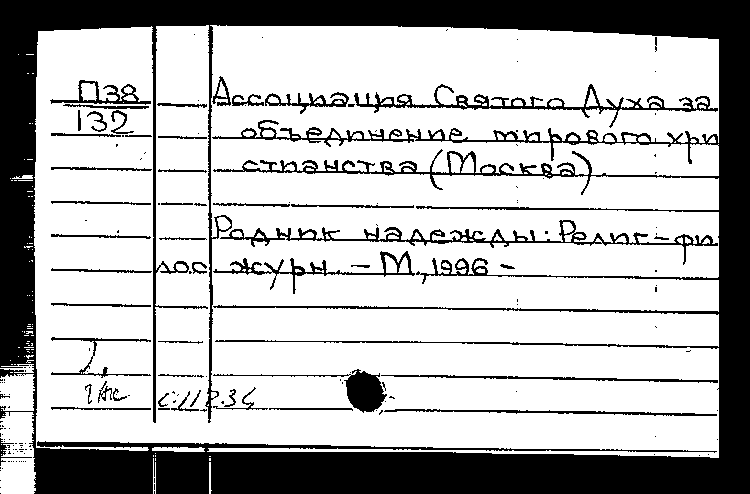 П38 Ассоциация Святого Духа за
132 объединение мирового хри
стианства (Москва).
Родник надежды: Религ-фи
лос журн. - М., 1996 -